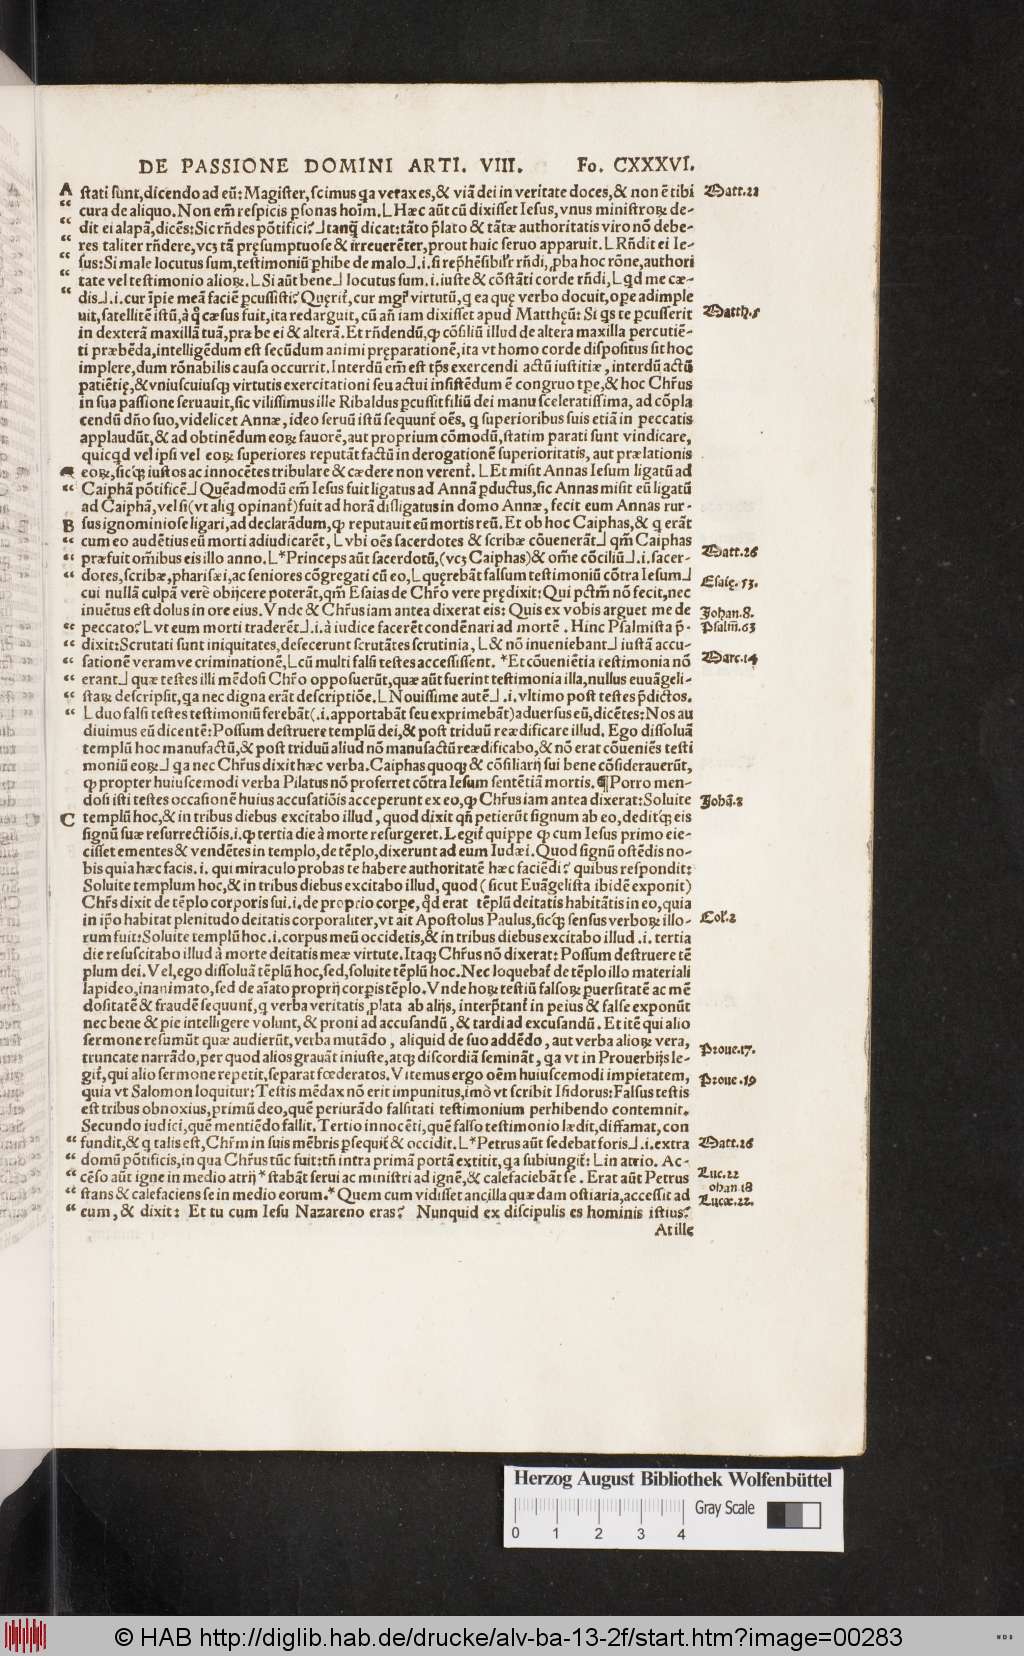 DE PASSIONE DOMINI ARTI. VIII. Fo. CXXXVI.
A ſtati ſunt, dicendo ad eũ: Magiſter, ſcimus qa verax es, & viã dei in veritate doces, & non ẽ tibi Matt.22
cura de aliquo. Non em̃ reſpicis ꝑſonas hoĩm. L Hæc aũt cũ dixiſſet Ieſus, vnus miniſtroꝝ de-
dit ei alapã, dicẽs: Sic rñdes põtifici? ⅃ tanq̃ dicat: tãto p̃lato & tãtæ authoritatis viro nõ debe-
res taliter rñdere, vcꝫ tã pręſumptuoſe & irreuerẽter, prout huic ſeruo apparuit. L Rñdit ei Ie-
ſus: Si male locutus ſum, teſtimoniũ ꝑhibe de malo ⅃ .i. ſi rep̃hẽſibilr̃ rñdi, ꝓba hoc rõne, authori
tate vel teſtimonio alioꝝ. L Si aũt bene ⅃ locutus ſum .i. iuſte & cõſtãti corde rñdi, L qd me cæ-
dis ⅃ .i. cur ĩpie meã faciẽ ꝑcuſſiſti? Quęrit̃, cur mgr̃ virtutũ, q ea quę verbo docuit, ope adimple
uit, ſatellitẽ iſtũ, à q̃ cæſus fuit, ita redarguit, cũ añ iam dixiſſet apud Matthęũ: Si qs te ꝑcuſſerit Matth.5
in dexterã maxillã tuã, præbe ei & alterã. Et rñdendũ, ꝙ cõſiliũ illud de altera maxilla percutiẽ-
ti præbẽda, intelligẽdum eſt ſecũdum animi pręparationẽ, ita vt homo corde diſpoſitus ſit hoc
implere, dum rõnabilis cauſa occurrit. Interdũ em̃ eſt tp̃s exercendi actũ iuſtitiæ, interdũ actũ
patiẽtię, & vniuſcuiuſqꝫ virtutis exercitationi ſeu actui inſiſtẽdum ẽ congruo tp̃e, & hoc Chr̃us
in ſua paſſione ſeruauit, ſic viliſſimus ille Ribaldus ꝑcuſſit filiũ dei manu ſceleratiſſima, ad cõpla
cendũ dño ſuo, videlicet Annæ, ideo ſeruũ iſtũ ſequunt̃ oẽs, q ſuperioribus ſuis etiã in peccatis
applaudũt, & ad obtinẽdum eoꝝ fauorẽ, aut proprium cõmodũ, ſtatim parati ſunt vindicare,
quicqd vel ipſi vel eoꝝ ſuperiores reputãt factũ in derogationẽ ſuperioritatis, aut prælationis
eoꝝ, ſicqꝫ iuſtos ac innocẽtes tribulare & cædere non verent̃. L Et miſit Annas Ieſum ligatũ ad
Caiphã põtificẽ ⅃ Quẽadmodũ em̃ Ieſus fuit ligatus ad Annã ꝑductus, ſic Annas miſit eũ ligatũ
ad Caiphã, vel ſi (vt aliq opinant̃) fuit ad horã diſligatus in domo Annæ, fecit eum Annas rur-
B ſus ignominioſe ligari, ad declarãdum, ꝙ reputauit eũ mortis reũ. Et ob hoc Caiphas, & q erãt
cum eo audẽtius eũ morti adiudicarẽt, L vbi oẽs ſacerdotes & ſcribæ cõuenerãt ⅃ qm̃ Caiphas
præfuit om̃ibus eis illo anno. L *Princeps aũt ſacerdotũ, (vcꝫ Caiphas) & om̃e cõciliũ ⅃ .i. ſacer- Matt.26
dotes, ſcribæ, phariſæi, ac ſeniores cõgregati cũ eo, L quęrebãt falſum teſtimoniũ cõtra Ieſum ⅃
cui nullã culpã verè obijcere poterãt, qm̃ Eſaias de Chr̃o vere prędixit: Qui pctm̃ nõ fecit, nec Eſaię.53.
inuẽtus eſt dolus in ore eius. Vnde & Chr̃us iam antea dixerat eis: Quis ex vobis arguet me de Johan.8.
peccato? L vt eum morti traderẽt ⅃ .i. à iudice facerẽt condẽnari ad mortẽ. Hinc Pſalmiſta p̃- Pſalm̃.63
dixit: Scrutati ſunt iniquitates, defecerunt ſcrutãtes ſcrutinia, L & nõ inueniebant ⅃ iuſtã accu-
ſationẽ veramve criminationẽ, L cũ multi falſi teſtes acceſſiſſent. *Et cõueniẽtia teſtimonia nõ Marc.14
erant ⅃ quæ teſtes illi mẽdoſi Chr̃o oppoſuerũt, quæ aũt fuerint teſtimonia illa, nullus euuãgeli-
ſtaꝝ deſcripſit, qa nec digna erãt deſcriptiõe. L Nouiſſime autẽ ⅃ .i. vltimo poſt teſtes p̃dictos.
L duo falſi teſtes teſtimoniũ ferebãt (.i. apportabãt ſeu exprimebãt) aduerſus eũ, dicẽtes: Nos au
diuimus eũ dicentẽ: Poſſum deſtruere templũ dei, & poſt triduũ reædificare illud. Ego diſſoluã
templũ hoc manufactũ, & poſt triduũ aliud nõ manufactũ reædificabo, & nõ erat cõueniẽs teſti
moniũ eoꝝ ⅃ qa nec Chr̃us dixit hæc verba. Caiphas quoqꝫ & cõſiliarij ſui bene cõſiderauerũt,
ꝙ propter huiuſcemodi verba Pilatus nõ proferret cõtra Ieſum ſentẽtiã mortis. ¶ Porro men-
doſi iſti teſtes occaſionẽ huius accuſatiõis acceperunt ex eo, ꝙ Chr̃us iam antea dixerat: Soluite Johã.2
C templũ hoc, & in tribus diebus excitabo illud, quod dixit qñ petierũt ſignum ab eo, deditqꝫ eis
ſignũ ſuæ reſurrectiõis .i. ꝙ tertia die à morte reſurgeret. Legit̃ quippe ꝙ cum Ieſus primo eie-
ciſſet ementes & vendẽtes in templo, de tẽplo, dixerunt ad eum Iudæi. Quod ſignũ oſtẽdis no-
bis quia hæc facis .i. qui miraculo probas te habere authoritatẽ hæc faciẽdi? quibus reſpondit:
Soluite templum hoc, & in tribus diebus excitabo illud, quod (ſicut Euãgeliſta ibidẽ exponit)
Chr̃s dixit de tẽplo corporis ſui .i. de proprio corpe, q̃d erat tẽplũ deitatis habitãtis in eo, quia
in ip̃o habitat plenitudo deitatis corporaliter, vt ait Apoſtolus Paulus, ſicqꝫ ſenſus verboꝝ illo- Col̃.2
rum fuit: Soluite templũ hoc .i. corpus meũ occidetis, & in tribus diebus excitabo illud .i. tertia
die reſuſcitabo illud à morte deitatis meæ virtute. Itaqꝫ Chr̃us nõ dixerat: Poſſum deſtruere tẽ
plum dei. Vel, ego diſſoluã tẽplũ hoc, ſed, ſoluite tẽplũ hoc. Nec loquebat̃ de tẽplo illo materiali
lapideo, inanimato, ſed de aĩato proprij corpis tẽplo. Vnde hoꝝ teſtiũ falſoꝝ ꝑuerſitatẽ ac mẽ
doſitatẽ & fraudẽ ſequunt̃, q verba veritatis ꝓlata ab alijs, interp̃tant̃ in peius & falſe exponũt
nec bene & pie intelligere volunt, & proni ad accuſandũ, & tardi ad excuſandũ. Et itẽ qui alio
ſermone reſumũt quæ audierũt, verba mutãdo, aliquid de ſuo addẽdo, aut verba alioꝝ vera,
truncate narrãdo, per quod alios grauãt iniuſte, atqꝫ diſcordiã ſeminãt, qa vt in Prouerbijs le- Proue.17.
git̃, qui alio ſermone repetit, ſeparat fœderatos. Vitemus ergo oẽm huiuſcemodi impietatem, Proue.19
quia vt Salomon loquitur: Teſtis mẽdax nõ erit impunitus, imò vt ſcribit Iſidorus: Falſus teſtis
eſt tribus obnoxius, primũ deo, quẽ periurãdo falſitati teſtimonium perhibendo contemnit.
Secundo iudici, quẽ mentiẽdo fallit. Tertio innocẽti, quẽ falſo teſtimonio lædit, diffamat, con
fundit, & q talis eſt, Chr̃m in ſuis mẽbris ꝑſequit̃ & occidit. L *Petrus aũt ſedebat foris ⅃ .i. extra Matt.26
domũ põtificis, in qua Chr̃us tũc fuit: tñ intra primã portã extitit, qa ſubiungit̃: L in atrio. Ac-
cẽſo aũt igne in medio atrij *ſtabãt ſerui ac miniſtri ad ignẽ, & calefaciebãt ſe. Erat aũt Petrus Luc.22
ſtans & calefaciens ſe in medio eorum. *Quem cum vidiſſet ancilla quædam oſtiaria, acceſſit ad ohan.18
eum, & dixit: Et tu cum Ieſu Nazareno eras? Nunquid ex diſcipulis es hominis iſtius? Lucæ.22.
At ille
Herzog August Bibliothek Wolfenbüttel
0 1 2 3 4 Gray Scale
© HAB http://diglib.hab.de/drucke/alv-ba-13-2f/start.htm?image=00283